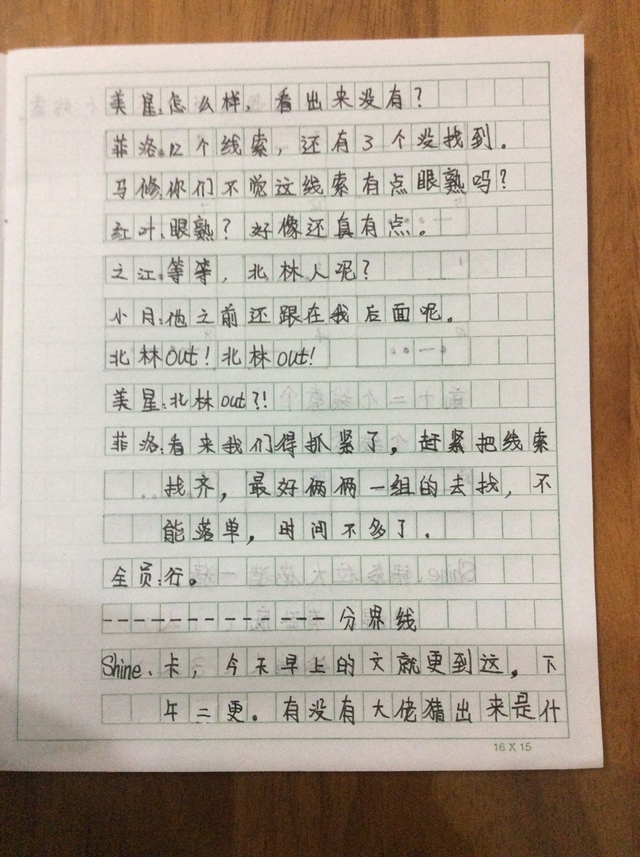 美星:怎么样，看出来没有？
菲洛:12个线索，还有3个没找到.
马修:你们不觉这线索有点眼熟吗？
红叶:眼熟？好像还真有点。
之江:等等，北林人呢？
小月:他之前还跟在我后面呢。
北林out!北林out!
美星:北林out?!
菲洛:看来我们得抓紧了，赶紧把线索
找齐，最好俩俩一组的去找，不
能落单，时间不多了.
全员:行。
-------------分界线
Shine:卡，今天早上的文就更到这，下
午二更。有没有大佬猜出来是什
16 X 15